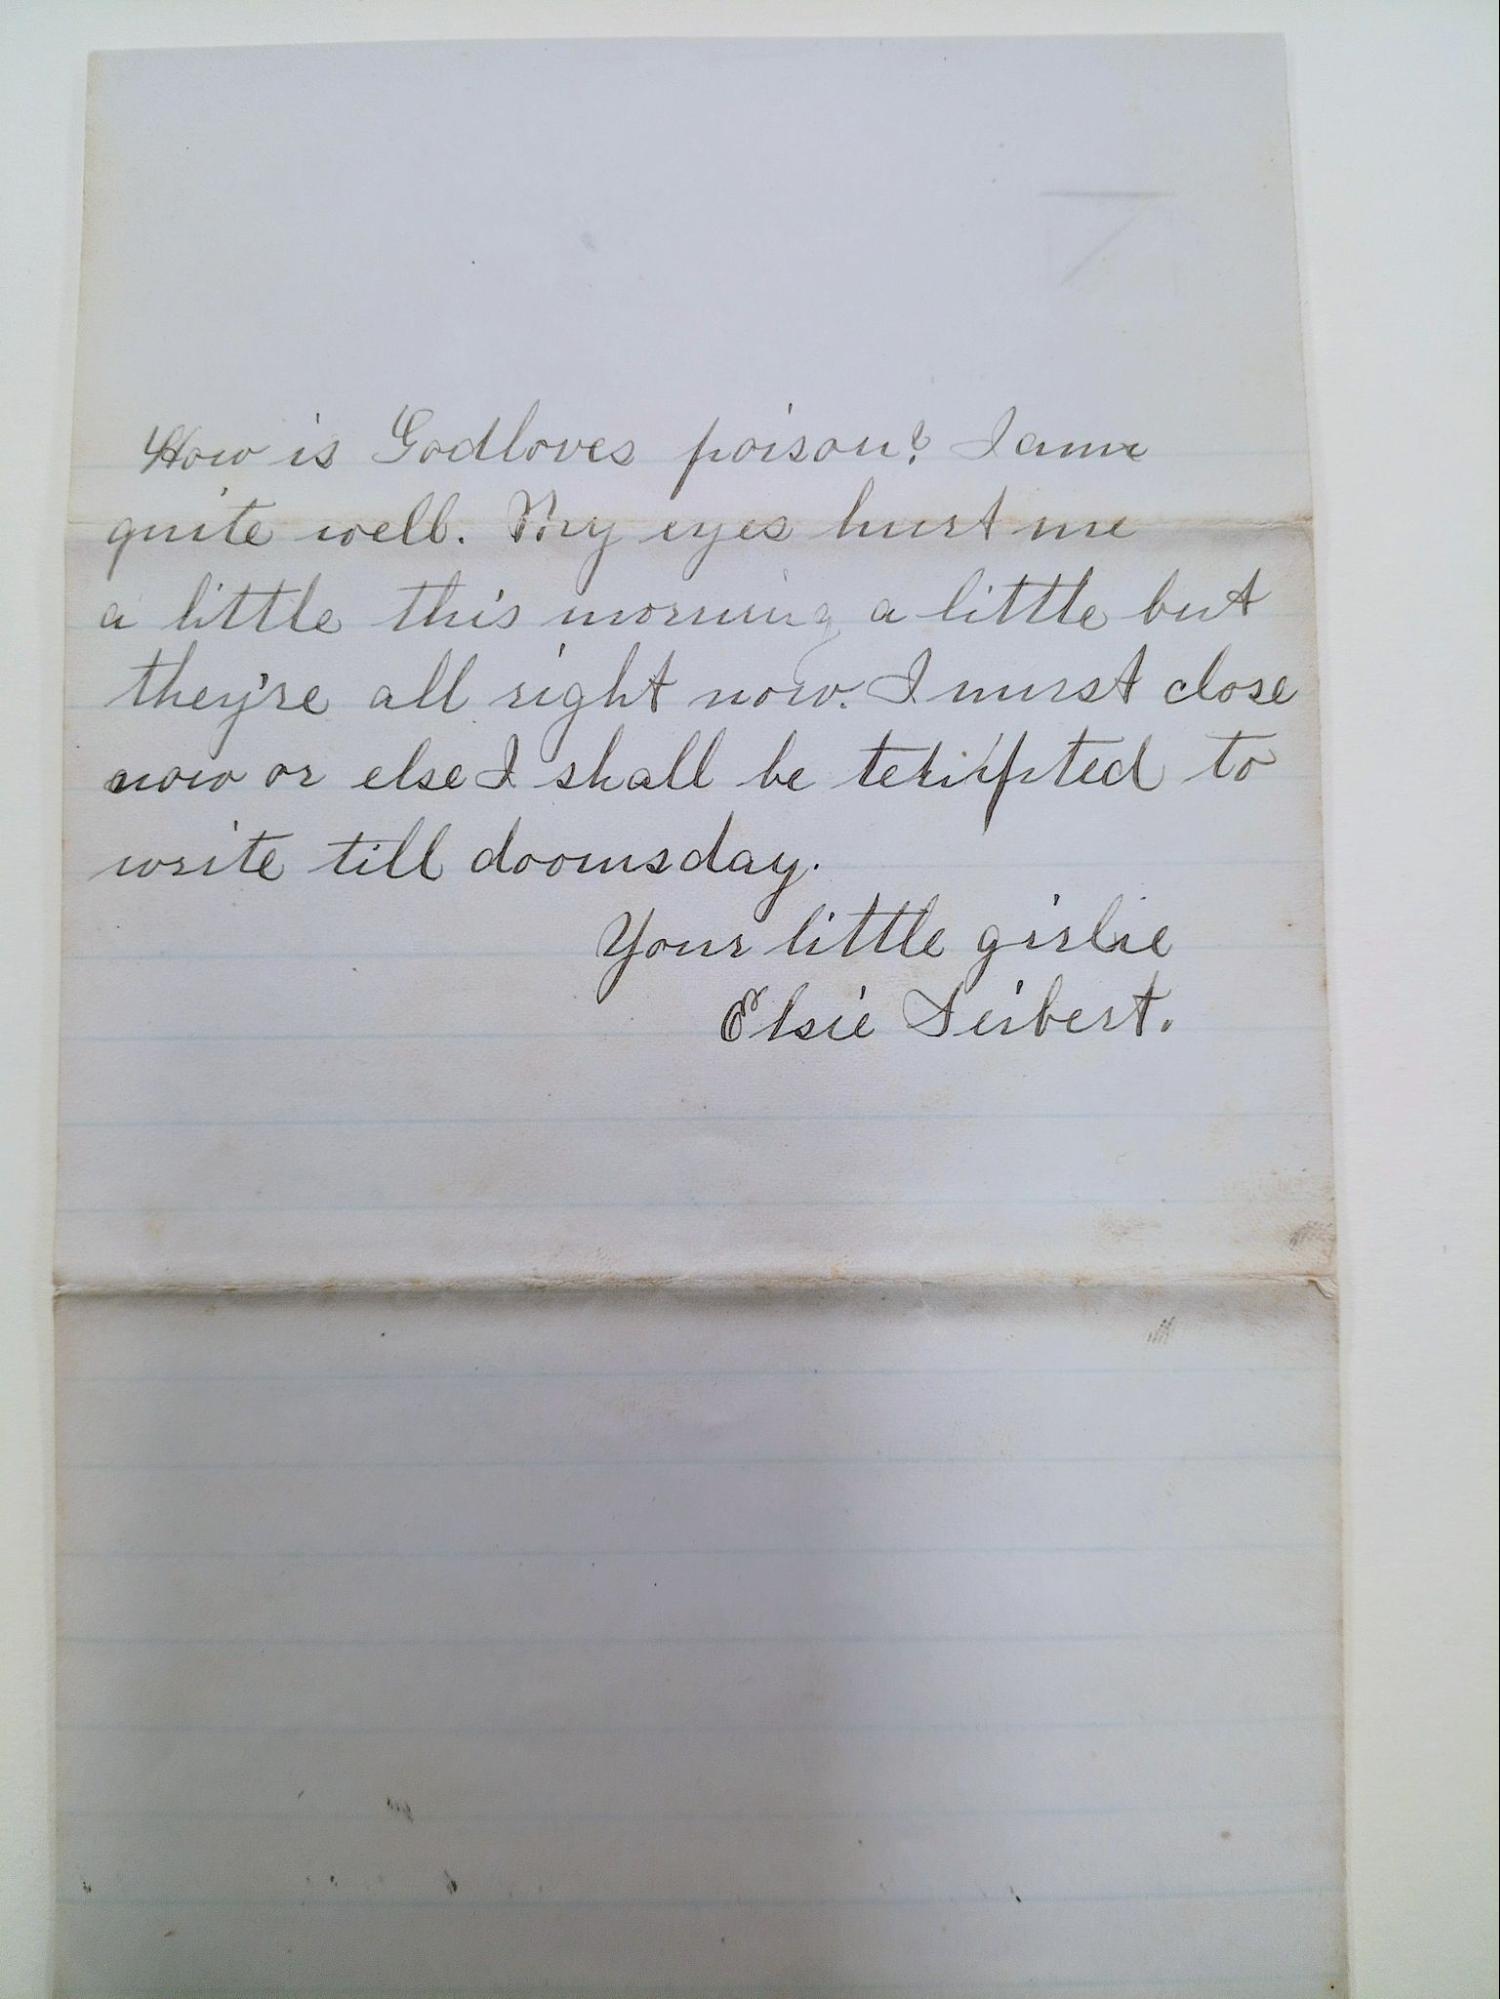 How is Godloves poison? I am
quite well. My eyes hurt me
a little this morning a little but
they're all right now. I must close
now or else I shall be to
write till doomsday.
Your little girlie
Elsie Seibert.